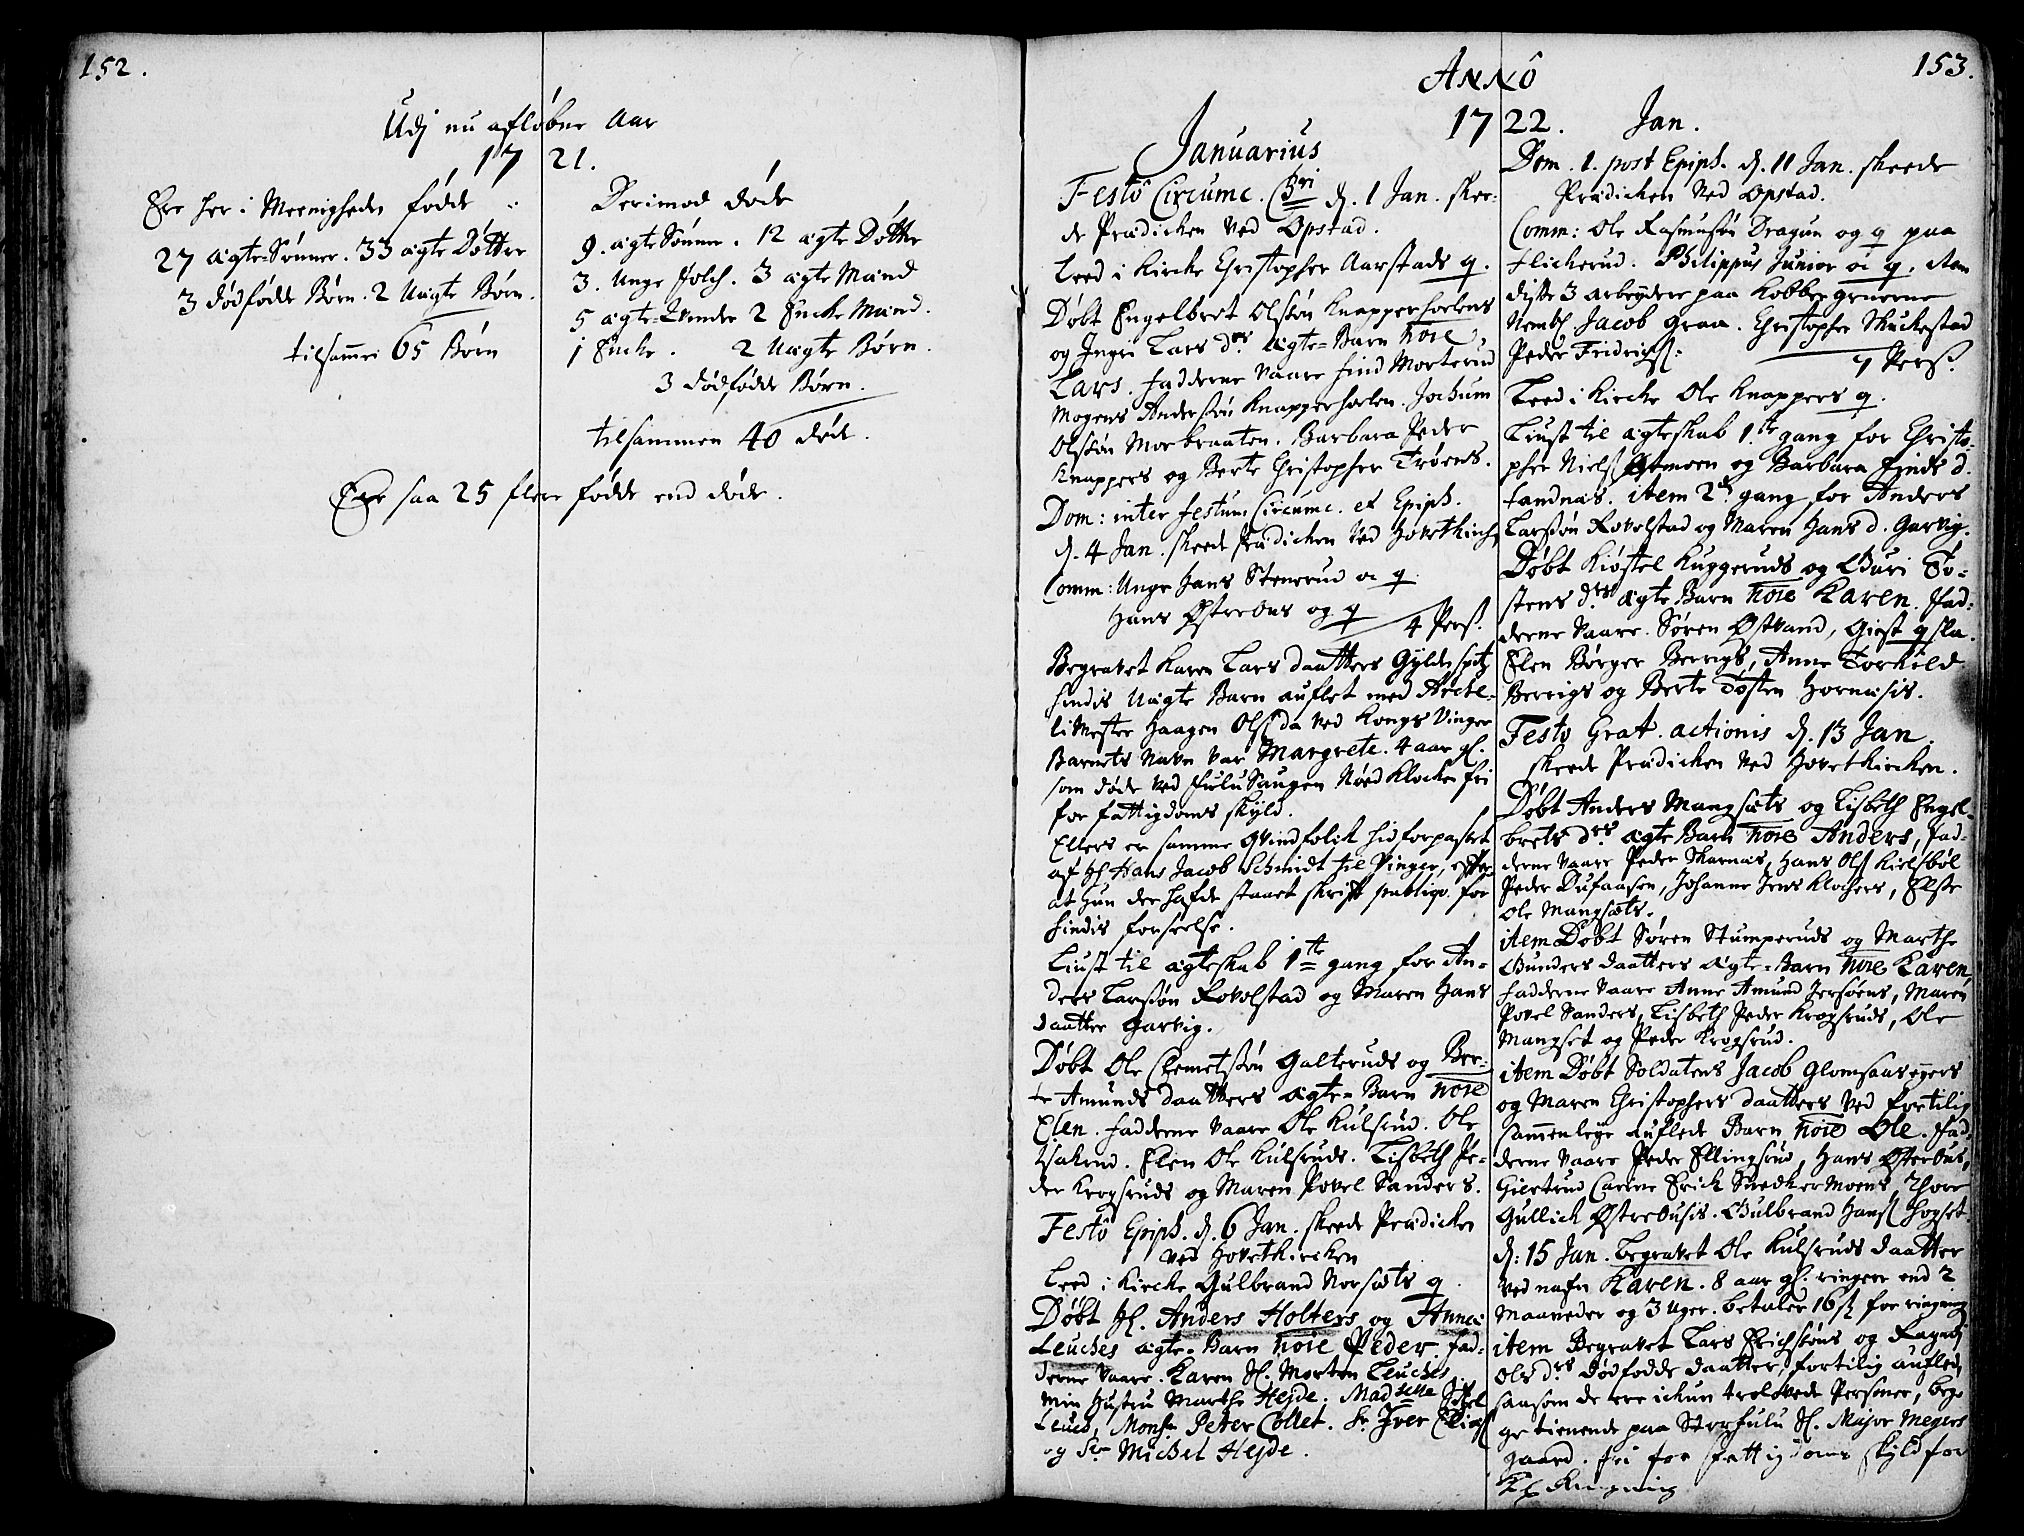 152.
Udj nu afløbne Aar
1721.
Ere her i Meenigheden fødde
27 ægte Sønner. 33 ægte Døttre
3 dødfødde Børn. 2 Uægte Børn.
tilsammen 65 Børn
Derimod døde
9. ægte Sønner. 12 ægte Døttre
3. Unge Folch. 3 ægte Mænd
5 ægte-Qvinder 2 Encke Mænd.
1 Encke. 2 Uægte Børn.
3 dødfødde Børn.
tilsammen 40 døde.
Ere saa 25 flere fødde end døde.
153.
Annô
1722.
Januarius
Festô Circumc. Chri d. 1 Jan. skee-
de Prædicken ved Opstad.
Leed i Kircke Christopher Aarstads q.
Døbt Engelbret Olssøn Knapperholens
og Ingri Lars drs ægte-Barn noie
Lars. Fadderne vaare Find Morterud
Mogens Anderssøn Knapperholen. Jochum
Olssøn Morbraaten. Barbara Peder
Knappers og Berte Christopher Trøens.
Dom: inter festum Circumc. et Epiph.
d. 4 Jan. skeede Prædicken ved Hovetkirch
Comm: Unge Hans Stenerud oc q.
Hans Østrebøs og q 4 Pers.
Begravet Karen Lars daatters Gyldespets
hendis Uægte Barn auflet med Artel-
li Mester Haagen Ols da ved Kongs Vinger
Barnets Navn var Margrete. 4 aar gl.
som døde ved Fulu Saugen Nøed Klocken fri
for fattigdoms skyld.
Ellers er samme Qvindfolck hid forpasset
af Hr Hans Jacob Schmidt til Vinger, efter
at hun der hafde staaet skrift publiqve for
hindis forseelse.
Liust til ægteskab 1te gang for An-
ders Larssøn Rovolstad og Maren Hans
daatter Garvig.
Døbt Ole Clemetssøn Galteruds og Ber-
te Amunds daatters ægte-Barn noie
Elen. Fadderne vaare Ole Kulsrud. Ole
Elen Ole Kulsruds. Lisbeth Pe-
der Krogsruds og Maren Povel Sanders.
Festô Epiph. d. 6 Jan. skeede Prædicken
ved Hovetkircken
Leed i Kircke Gulbrand Norsæts q.
Døbt Hr. Anders Holters og Annæ
Leuches ægte-Barn noie Peder. Fad-
derne vaare. Karen Hr. Morten Leuches
min Hustru Marthe Hejde. Madselle Sitzel
Leuch, Monsr Peter Collet. Sr. Iver Elies
og Sr Michel Hejde.
Jan.
Dom. 1. post Epiph. d. 11 Jan. skeede
Prædicken ved Opstad.
Comm: Ole Rasmussøn Dragun og q paa
Flickerud. Philippus Junior oc q. item
disse 3 arbeydere paa Kobbergruerne
Nembl. Jacob Graa. Christopher Skuckestad
Peder Fridrichs: 7 Pers.
Leed i Kircke Ole Knappers q.
Liust til ægteskab 1.te gang for Christo-
pher Niels Østmoen og Barbara Finds d.
Sandnæs. item 2d gang for Anders
Larssøn Rovolstad og Maren Hans d. Garvig.
Døbt Kiøstel Kuggeruds og Guri Tø-
stens drs ægte Barn noie Karen. Fad-
derne vaare. Søren Østvand, Giest q sla.
Elen Børger Berrigs, Anne Torkild
Berrigs og Berte Tøsten Hornæsis.
Festô Grat. actionis d. 13 Jan.
skeede Prædicken ved Hovetkircken.
Døbt Anders Mangsæts og Lisbeth Engel-
brets drs ægte Barn noie Anders, Fad-
derne vaare Peder Skarnæs, Hans Ols Kielsbøl
Peder Dufaasen, Johanne Jens Klochers, Else
Ole Mangsæts.
item Døbt Søren Stumperuds og Marthe
Gunders daatters ægte-Barn noie Karen
Fadderne vaare Anne Amund Jersøens, Maren
Povel Sanders, Lisbeth Peder Krogsruds, Ole
Mangset og Peder Krogsrud.
item Døbt Soldatens Jacob Glomsaaseggers
og Maren Christophers daatters ved fortilig
sammenleye auflede Barn noie Ole. Fad-
derne vaare Peder Ellingsrud, Hans Østerbøs,
Giertrud Carine Erich Snedkermoens, Thore
Gullich Østrebøsis. Gulbrand Hans Hogset.
d: 15 Jan. begravet Ole Kulsruds daatter
ved nafn Karen. 8 aar gl. ringere end 2
Maaneder og 3 uger. betaler 16 s for ringning
item Begravet Lars Erichssøns og Ragnil
Ols drs Dødfødde daatter, fortilig aufled
saasom de ere ickun trolovede Personer, beg-
ge tienende paa Storfulu Hr. Major Megers
gaard. fri for Fattigdoms skyld for
Kl Ringning